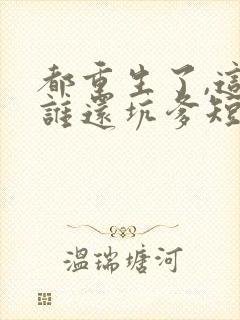 都重生了,這
誰還坑爹短
温瑞塘河